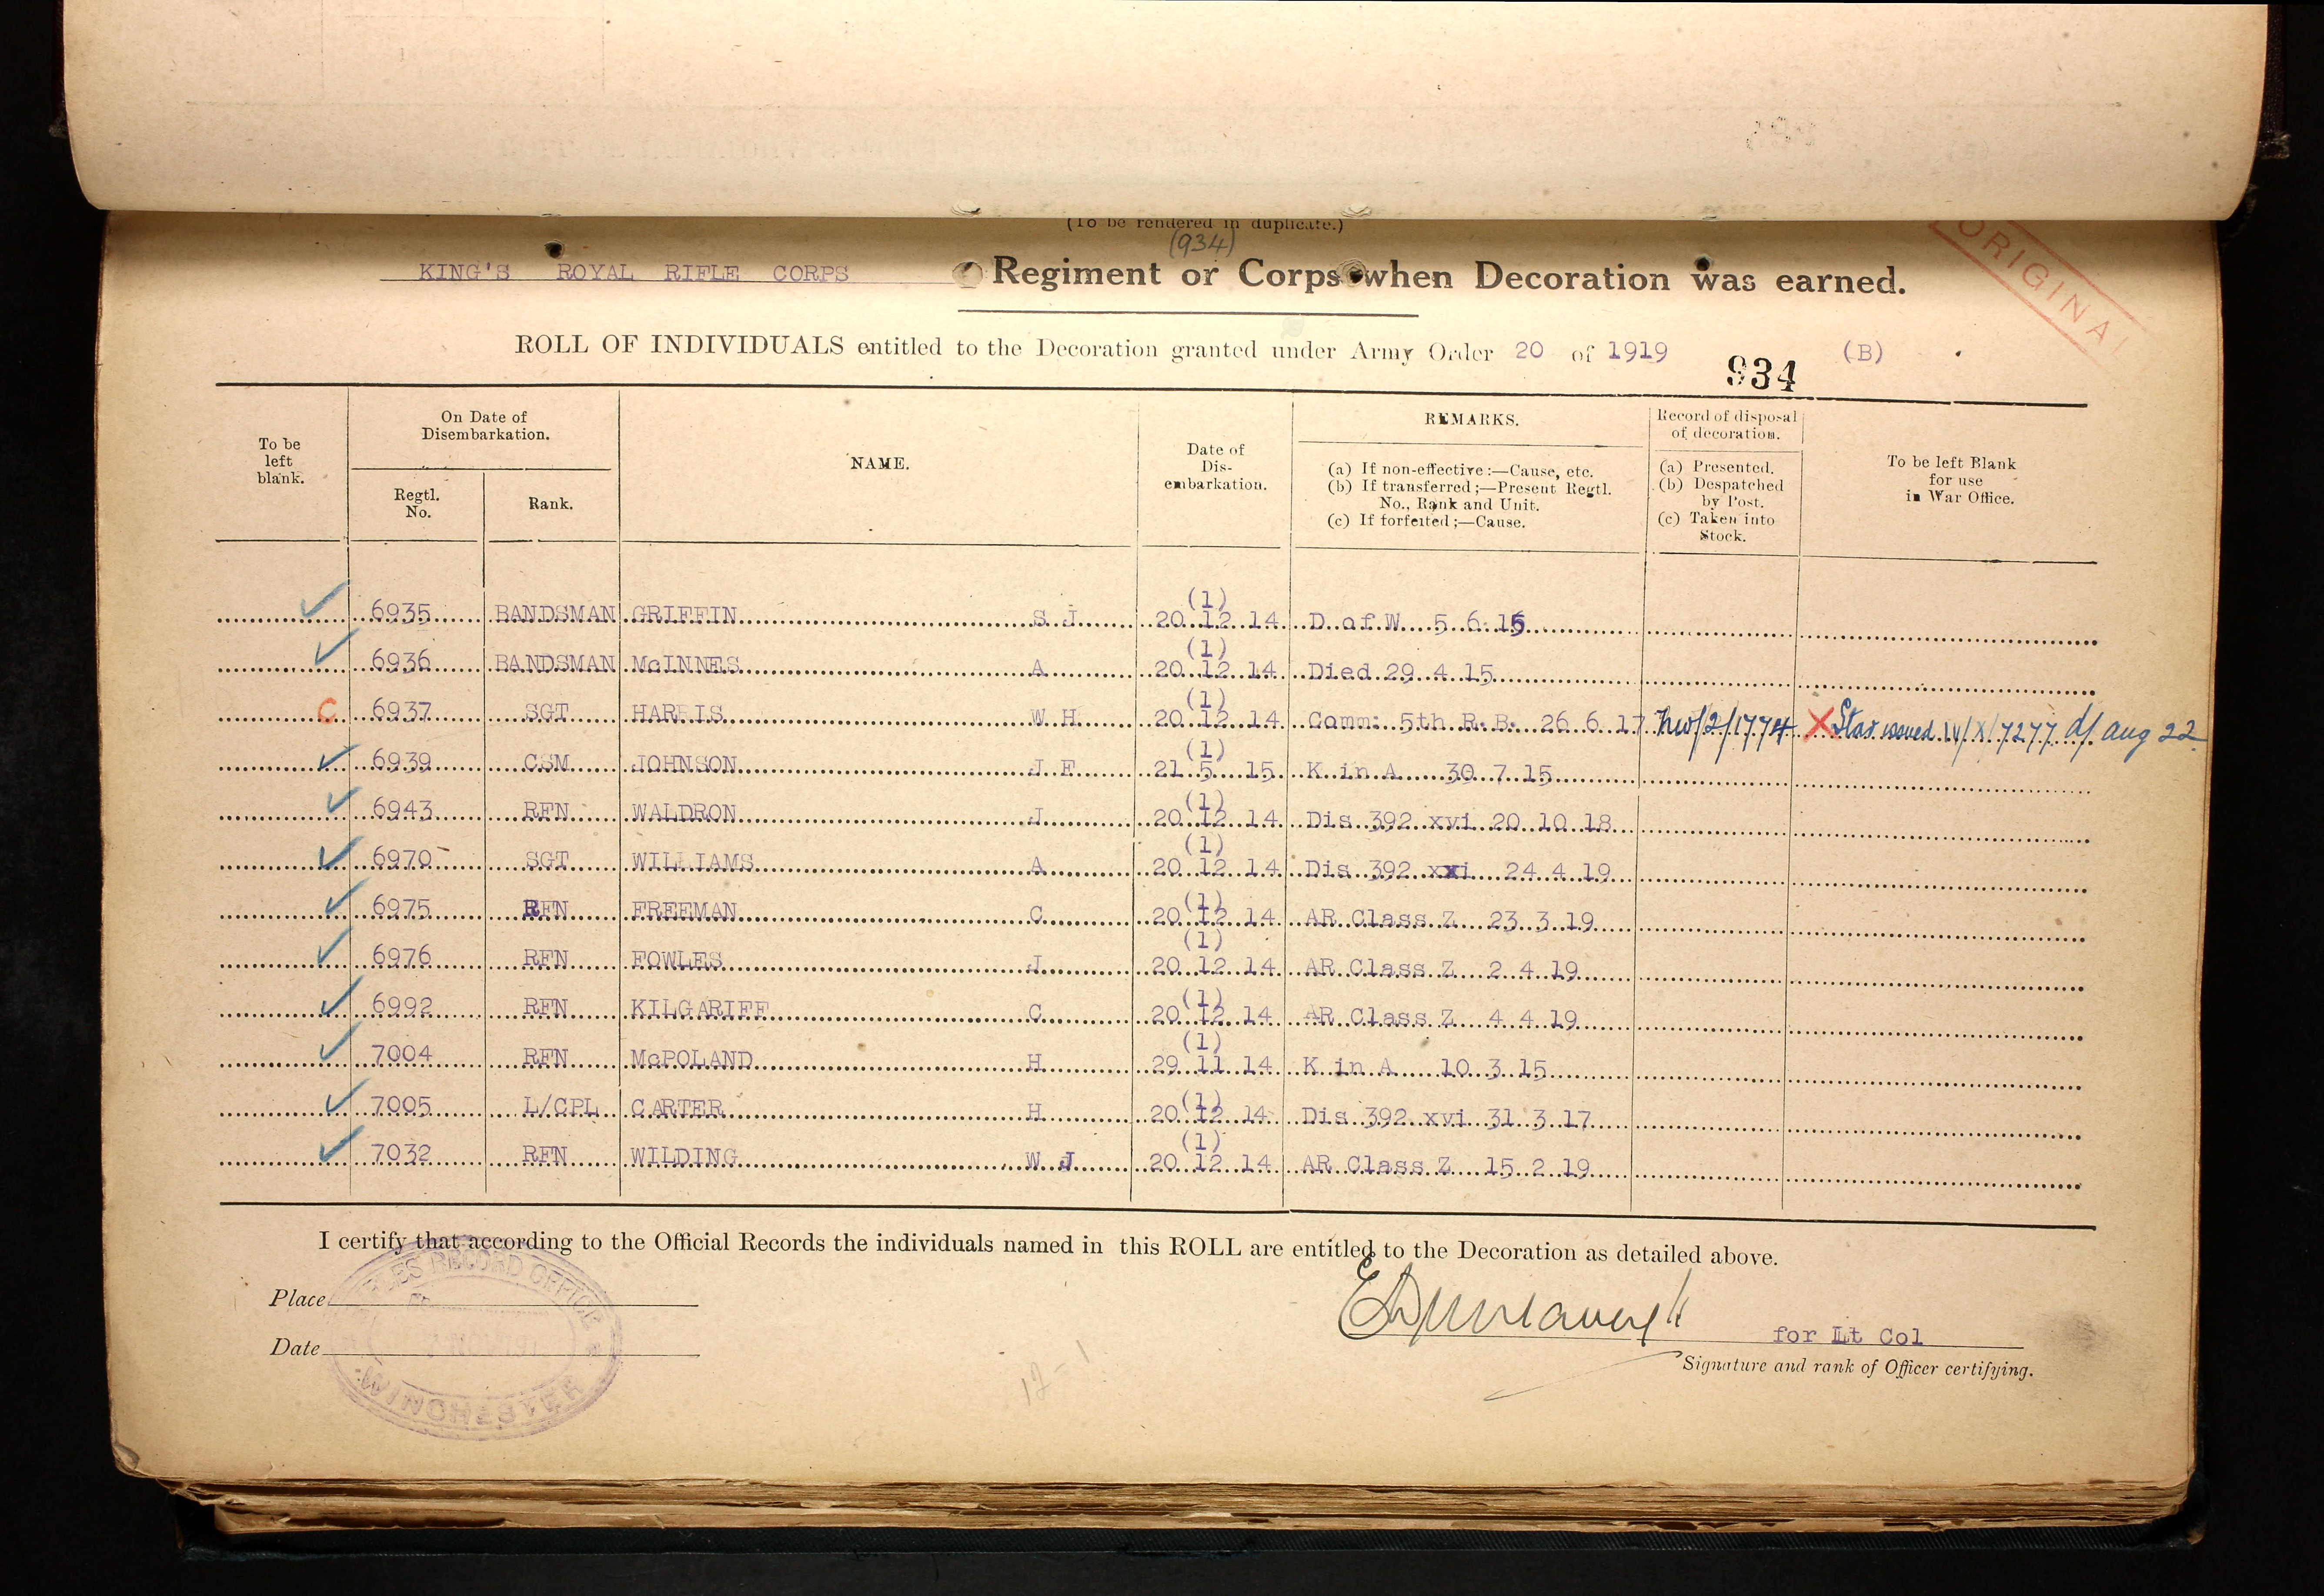 (To be rendered in duplicate.)
(934)
KING'S ROYAL RIFLE CORPS Regiment or Corps when Decoration was earned.
ORIGINAL
ROLL OF INDIVIDUALS entitled to the Decoration granted under Army Order 20 of 1919 (B)
934
To be left blank.
On Date of Disembarkation.
Regtl. No.
Rank.
NAME.
Date of Dis- embarkation.
REMARKS.
(a) If non-effective:—Cause, etc.
(b) If transferred;—Present Regtl. No., Rank and Unit.
(c) If forfeited;—Cause.
Record of disposal of decoration.
(a) Presented.
(b) Despatched by Post.
(c) Taken into Stock.
To be left Blank for use in War Office.
6935 BANDSMAN GRIFFIN S J (1) 20 12 14 D of W 5 6 15
6936 BANDSMAN McINNES A (1) 20 12 14 Died 29 4 15
C 6937 SGT HARRIS W H (1) 20 12 14 Comm: 5th R.B. 26 6 17 NW/2/1774 X Star issued IV/X/7277 d/ Aug 22
6939 CSM JOHNSON J F (1) 21 5 15 K in A 30 7 15
6943 RFN WALDRON J (1) 20 12 14 Dis 392 xvi 20 10 18
6970 SGT WILLIAMS A (1) 20 12 14 Dis 392 xxi 24 4 19
6975 RFN FREEMAN C (1) 20 12 14 AR Class Z 23 3 19
6976 RFN FOWLES J (1) 20 12 14 AR Class Z 2 4 19
6992 RFN KILGARIFF C (1) 20 12 14 AR Class Z 4 4 19
7004 RFN McPOLAND H (1) 29 11 14 K in A 10 3 15
7005 L/CPL CARTER H (1) 20 12 14 Dis 392 xvi 31 3 17
7032 RFN WILDING W J (1) 20 12 14 AR Class Z 15 2 19
I certify that according to the Official Records the individuals named in this ROLL are entitled to the Decoration as detailed above.
Place
RECORD OFFICE
WINCHESTER
Date
for Lt Col
Signature and rank of Officer certifying.
12-1